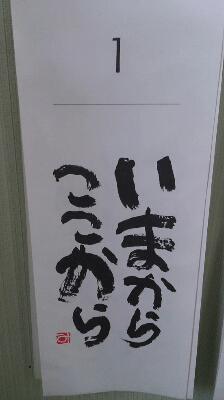 1
いまから
ここから